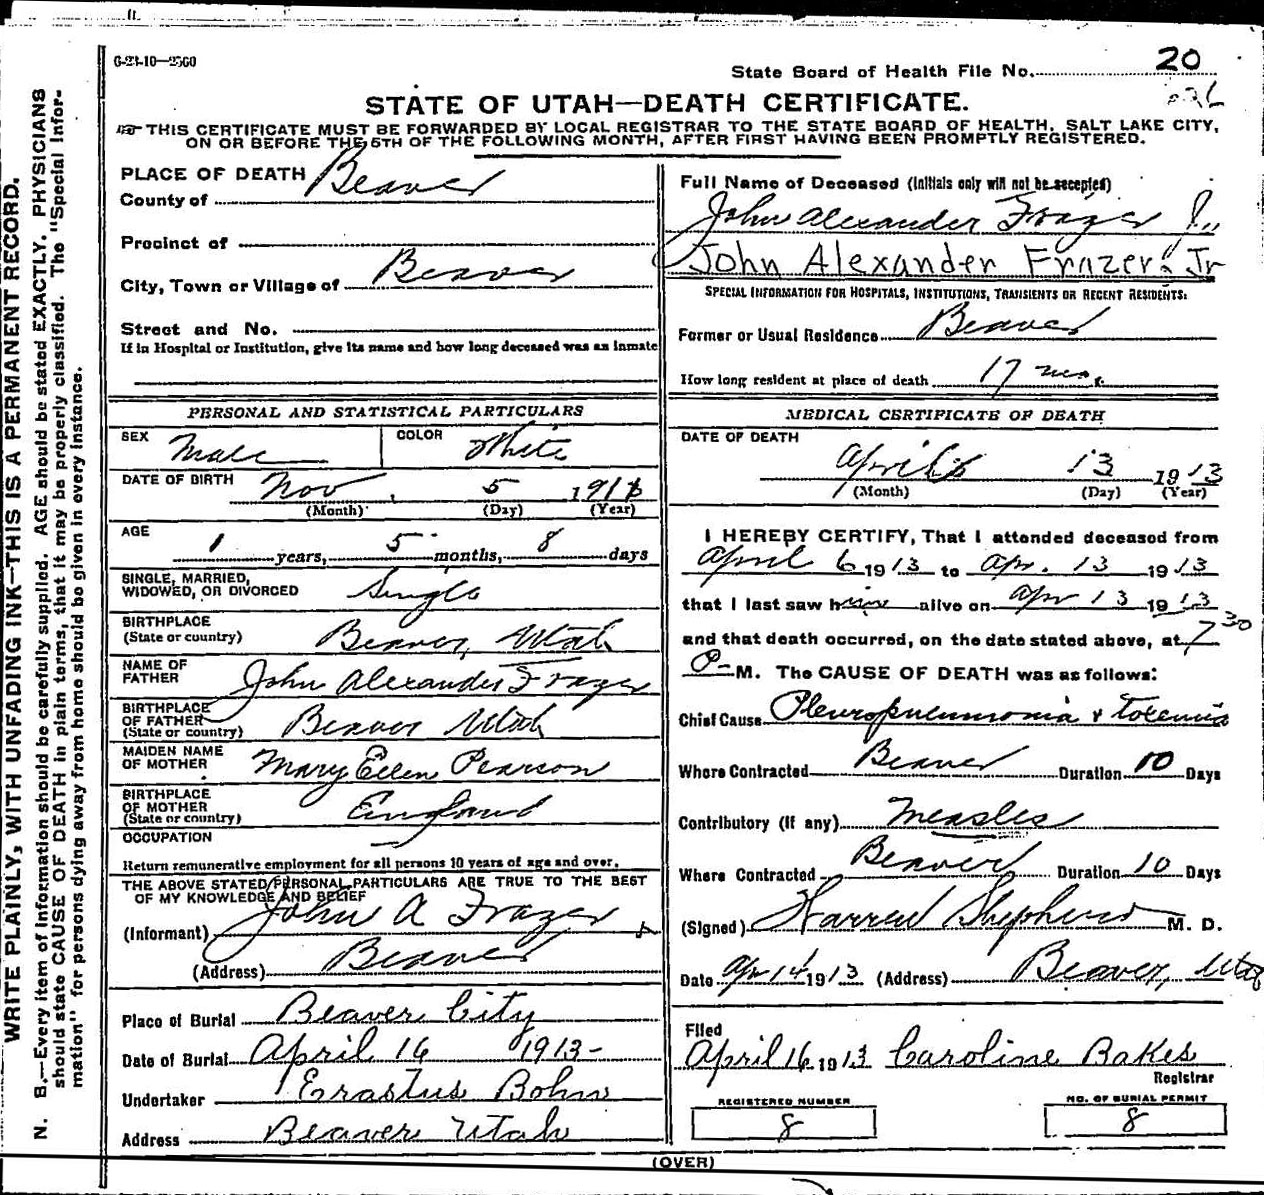 6-23-10—2560
State Board of Health File No. 20
STATE OF UTAH—DEATH CERTIFICATE.
THIS CERTIFICATE MUST BE FORWARDED BY LOCAL REGISTRAR TO THE STATE BOARD OF HEALTH, SALT LAKE CITY,
ON OR BEFORE THE 5TH OF THE FOLLOWING MONTH, AFTER FIRST HAVING BEEN PROMPTLY REGISTERED.
WRITE PLAINLY, WITH UNFADING INK—THIS IS A PERMANENT RECORD.
N. B.—Every item of information should be carefully supplied. AGE should be stated EXACTLY. PHYSICIANS
should state CAUSE OF DEATH in plain terms, that it may be properly classified. The "Special Infor-
mation" for persons dying away from home should be given in every instance.
PLACE OF DEATH
County of Beaver
Precinct of
City, Town or Village of Beaver
Street and No.
If in Hospital or Institution, give its name and how long deceased was an inmate
PERSONAL AND STATISTICAL PARTICULARS
SEX Male COLOR White
DATE OF BIRTH Nov 5 191
(Month) (Day) (Year)
AGE 1 years, 5 months, 8 days
SINGLE, MARRIED,
WIDOWED, OR DIVORCED Single
BIRTHPLACE
(State or country) Beaver, Utah
NAME OF
FATHER John Alexander Frazer
BIRTHPLACE
OF FATHER
(State or country) Beaver Utah
MAIDEN NAME
OF MOTHER Mary Ellen Pearson
BIRTHPLACE
OF MOTHER
(State or country) England
OCCUPATION
Return remunerative employment for all persons 10 years of age and over.
THE ABOVE STATED PERSONAL PARTICULARS ARE TRUE TO THE BEST
OF MY KNOWLEDGE AND BELIEF
(Informant) John A Frazer
(Address) Beaver
Place of Burial Beaver City
Date of Burial April 16 1913-
Undertaker Erastus Bohn
Address Beaver Utah
Full Name of Deceased (Initials only will not be accepted)
John Alexander Frazer Jr.
John Alexander Frazer. Jr
SPECIAL INFORMATION FOR HOSPITALS, INSTITUTIONS, TRANSIENTS OR RECENT RESIDENTS:
Former or Usual Residence Beaver
How long resident at place of death 17 mos.
MEDICAL CERTIFICATE OF DEATH
DATE OF DEATH
April 13 1913
(Month) (Day) (Year)
I HEREBY CERTIFY, That I attended deceased from
April 6 1913 to Apr. 13 1913
that I last saw him alive on Apr 13 1913
and that death occurred, on the date stated above, at 7 30
P M. The CAUSE OF DEATH was as follows:
Chief Cause Pleuropneumonia & toxemia
Where Contracted Beaver Duration 10 Days
Contributory (if any) Measles
Where Contracted Beaver Duration 10 Days
(Signed) Warren Shepherd M. D.
Date Apr 14 1913 (Address) Beaver, Utah
Filed
April 16 1913 Caroline Bakes
Registrar
REGISTERED NUMBER
8
NO. OF BURIAL PERMIT
8
(OVER)